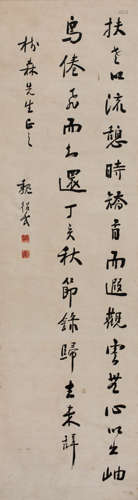 扶老以流憩時矯首而遐觀雲無心以出岫
鳥倦飛而知還丁亥秋節錄歸去來辭
樹森先生正之
魏紹武